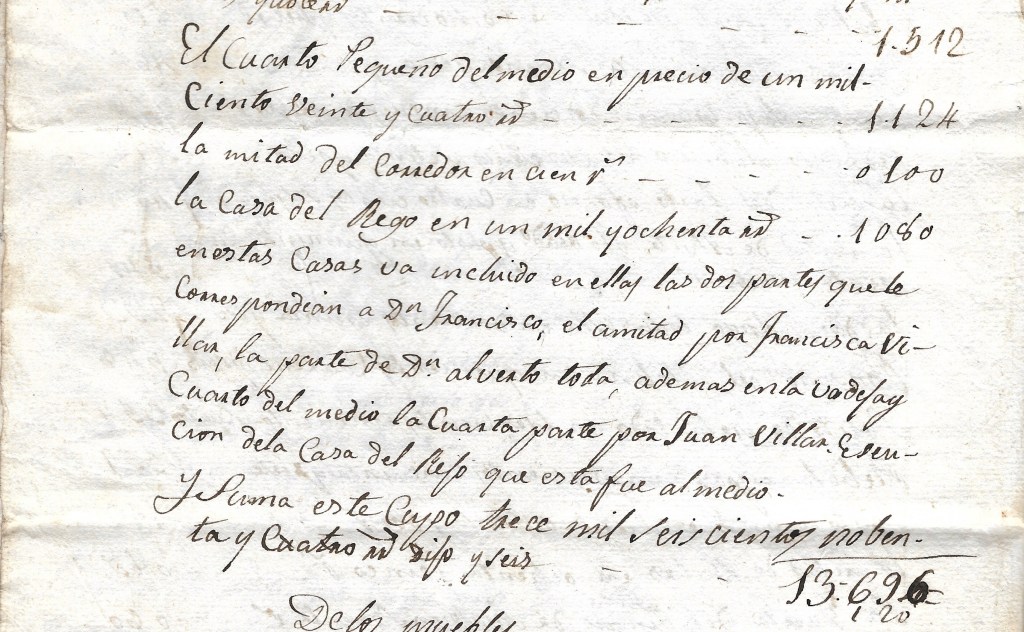 1.512
El Cuarto Pequeño del medio en precio de un mil-
Ciento veinte y cuatro rd - - - - - 1.124
la mitad del Corredor en cien rs - - - - 0100
la Casa del Rego en un mil y ochenta rd - . 1080
en estas Casas va incluido en ellas las dos partes que le
Correspondian a Dn Francisco, el amitad por Francisca Vi-
llar, la parte de Dn alverto toda, ademas en la y
Cuarto del medio la Cuarta parte por Juan Villar. Eseu-
cion dela Casa del que esta fue al medio.
Y Suma este Cupo trece mil seiscientos noben-
ta y Cuatro rd y seis
13.696
120
De los muebles